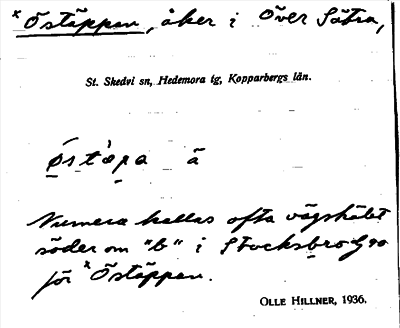 × Östäppan, åker i Över Sätra,
St. Skedvi sn, Hedemora tg, Kopparbergs län.
ä
Numera kallas ofta vägskälet
söder om "b" i
för × Östäppan.
OLLE HILLNER, 1936.